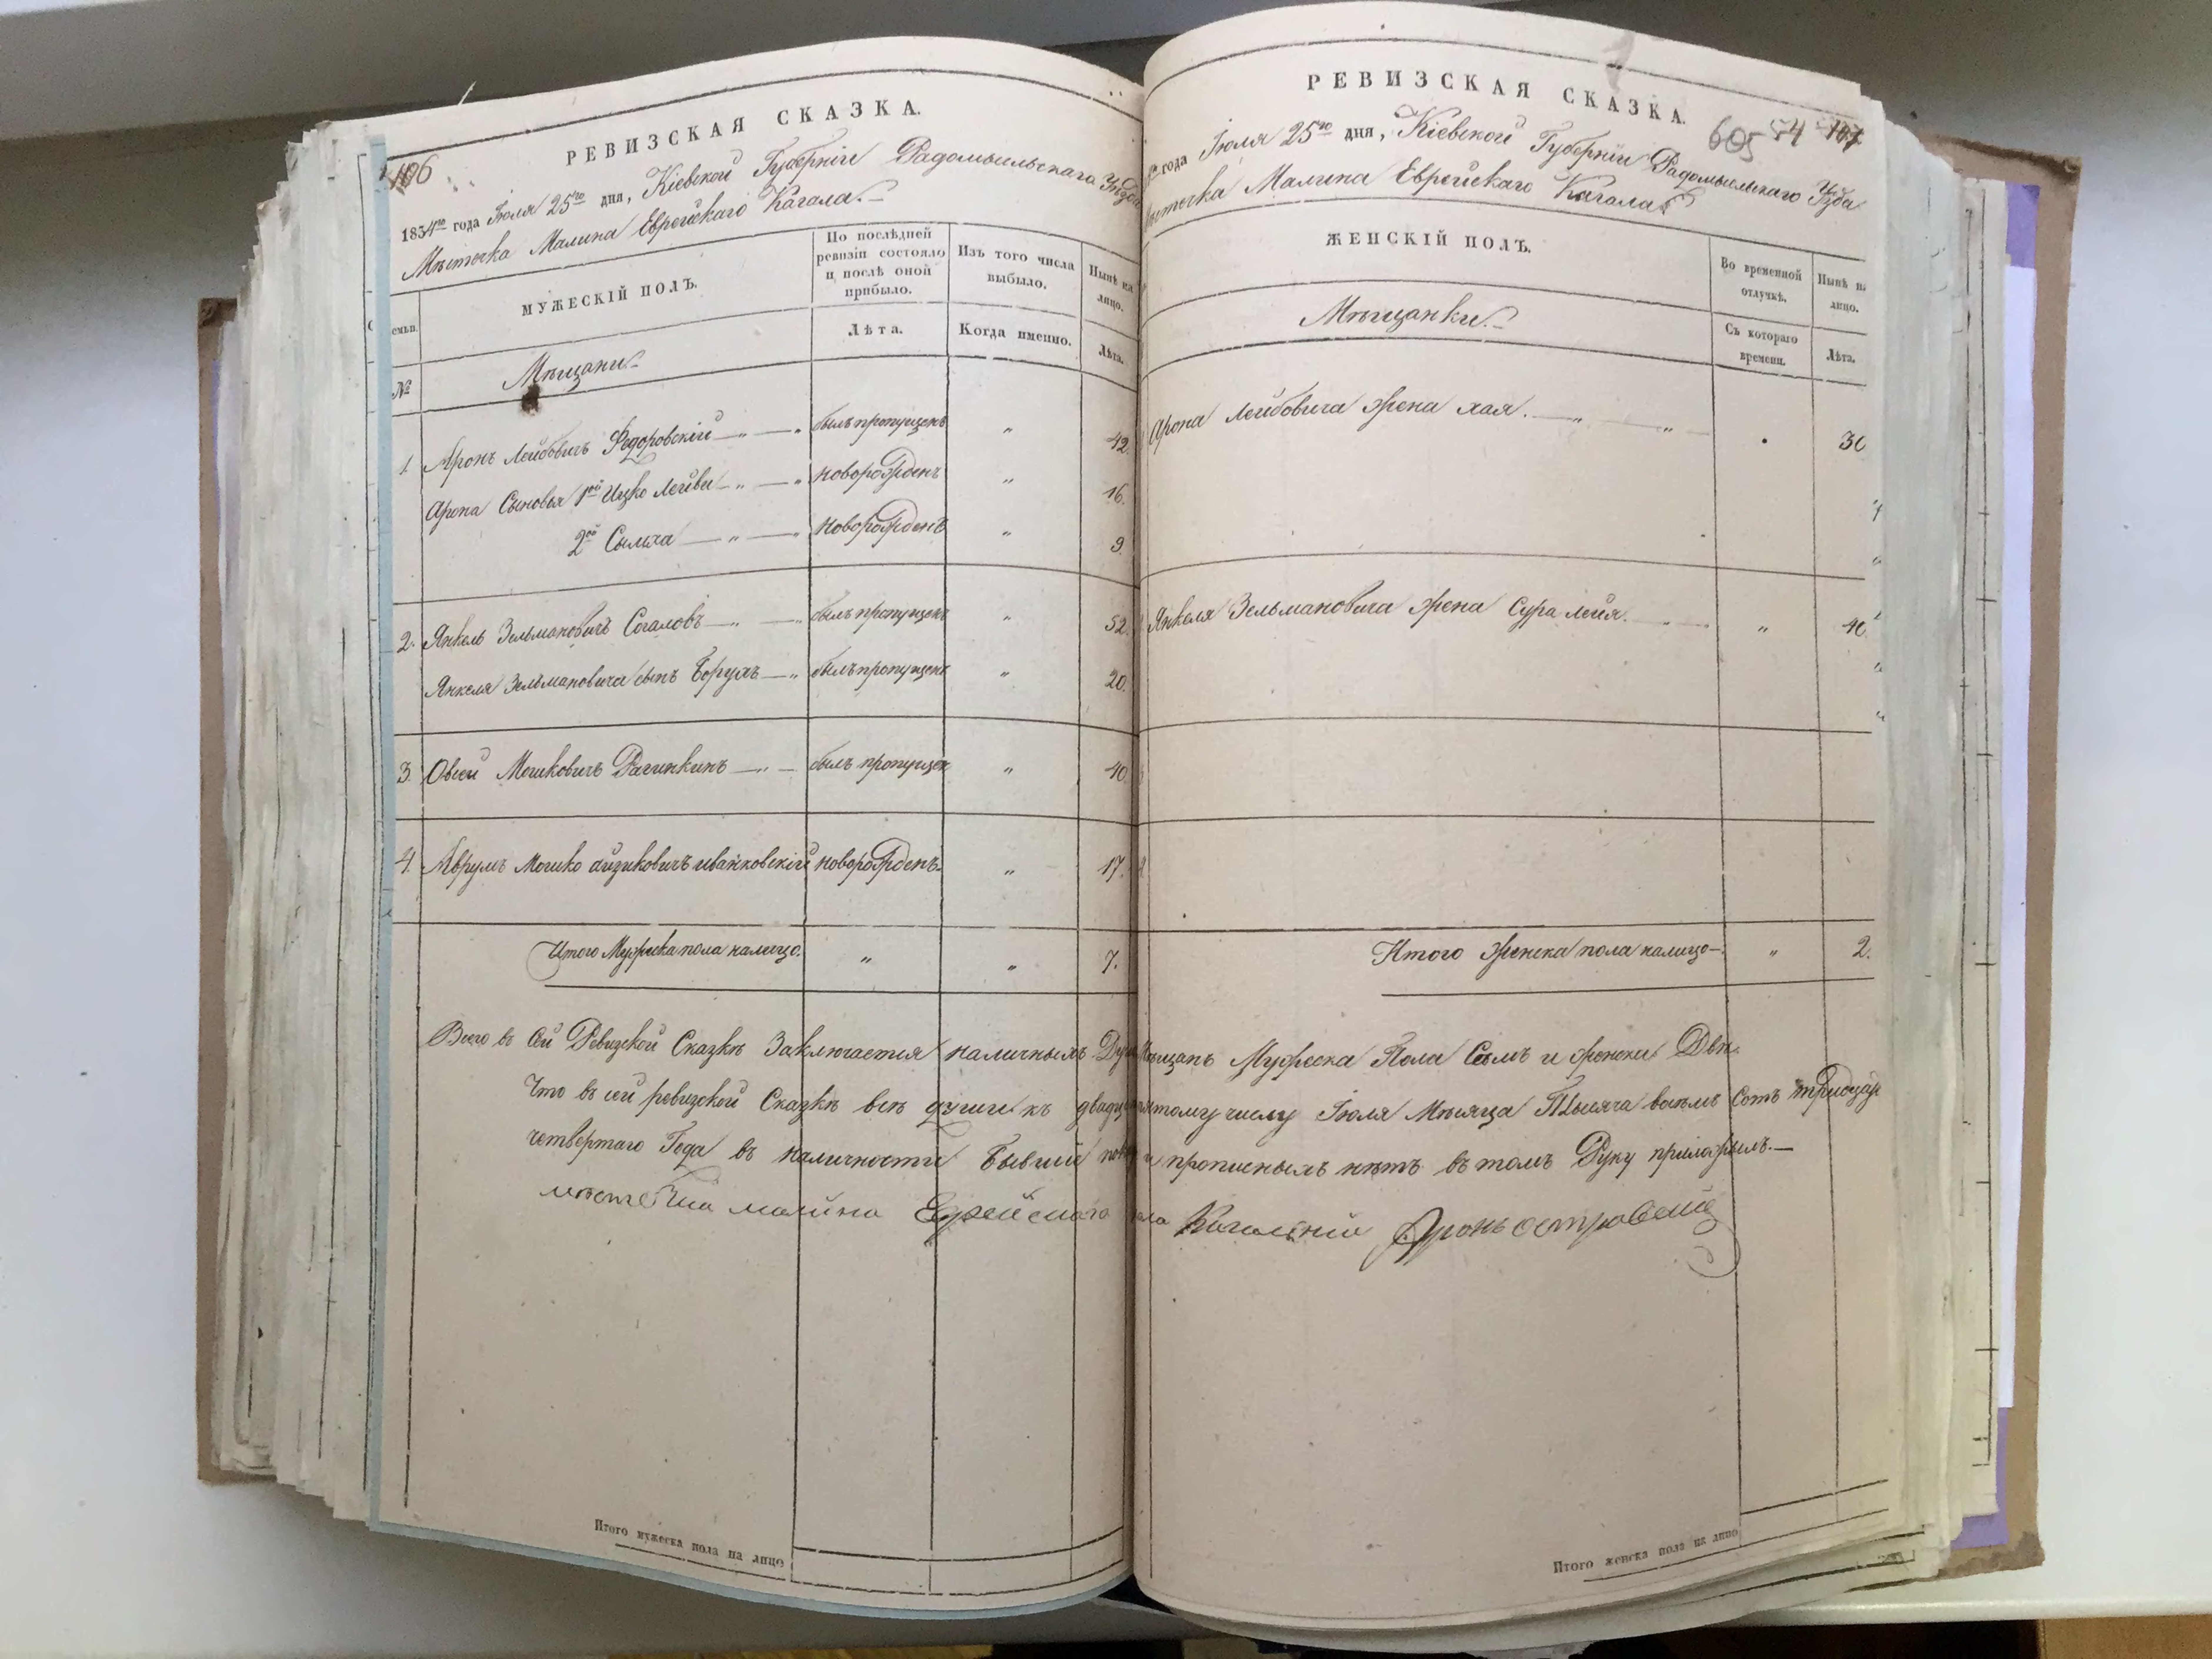 106
РЕВИЗСКАЯ СКАЗКА.
1834го года Іюля 25го дня, Кіевской Губерніи Радомысльскаго Уѣзда
Мѣстечка Малина Еврейскаго Кагала.
семьи.
МУЖЕСКІЙ ПОЛЪ.
По послѣдней ревизіи состояло и послѣ оной прибыло.
Изъ того числа выбыло.
Нынѣ на лицо.
№
Лѣта.
Когда именно.
Лѣта.
Мѣщани
1. Аронъ Лейбовичъ Федоровскій — былъ пропущенъ " 42.
Арона Сыновья 1й Ицко Лейви — новорожденъ " 16.
2й Сымха — новорожденъ " 9.
2. Янкель Зельмановичъ Согаловъ — былъ пропущенъ " 52.
Янкеля Зельмановича сынъ Борухъ — былъ пропущенъ " 20.
3. Овсей Мошковичъ — былъ пропущен " 40.
4. Аврумъ Мошко айзиковичъ иванковскій новорожденъ. " 17.
Итого Мужеска пола налицо. " " 7.
Всего въ сей Ревизской Сказкѣ Заключается наличныхъ
Что въ сей ревизской Сказкѣ всѣ души къ
четвертаго Года въ наличности Бывши
малина
Итого мужеска пола на лицо
РЕВИЗСКАЯ СКАЗКА.
605 54 107
года Іюля 25го дня, Кіевской Губерніи Радомысльскаго Уѣзда
Мѣстечка Малина Еврейскаго Кагала
ЖЕНСКІЙ ПОЛЪ.
Во временной отлучкѣ.
Нынѣ на лицо.
Съ котораго времени.
Лѣта.
Мѣщанки.
Арона Лейбовича жена хая. — " — " 30
Янкеля Зельмановича жена Сура лея. — " 40.
Итого женска пола налицо — " 2.
Мѣщанъ Мужеска Пола Семъ и женски Двѣ.
числу Іюля Мѣсяца Тысяча восѣмъ Сотъ тридцат
и прописныхъ нѣтъ въ томъ Руку приложилъ. —
Кагальній Аронь островскій
Итого женска пола на лицо